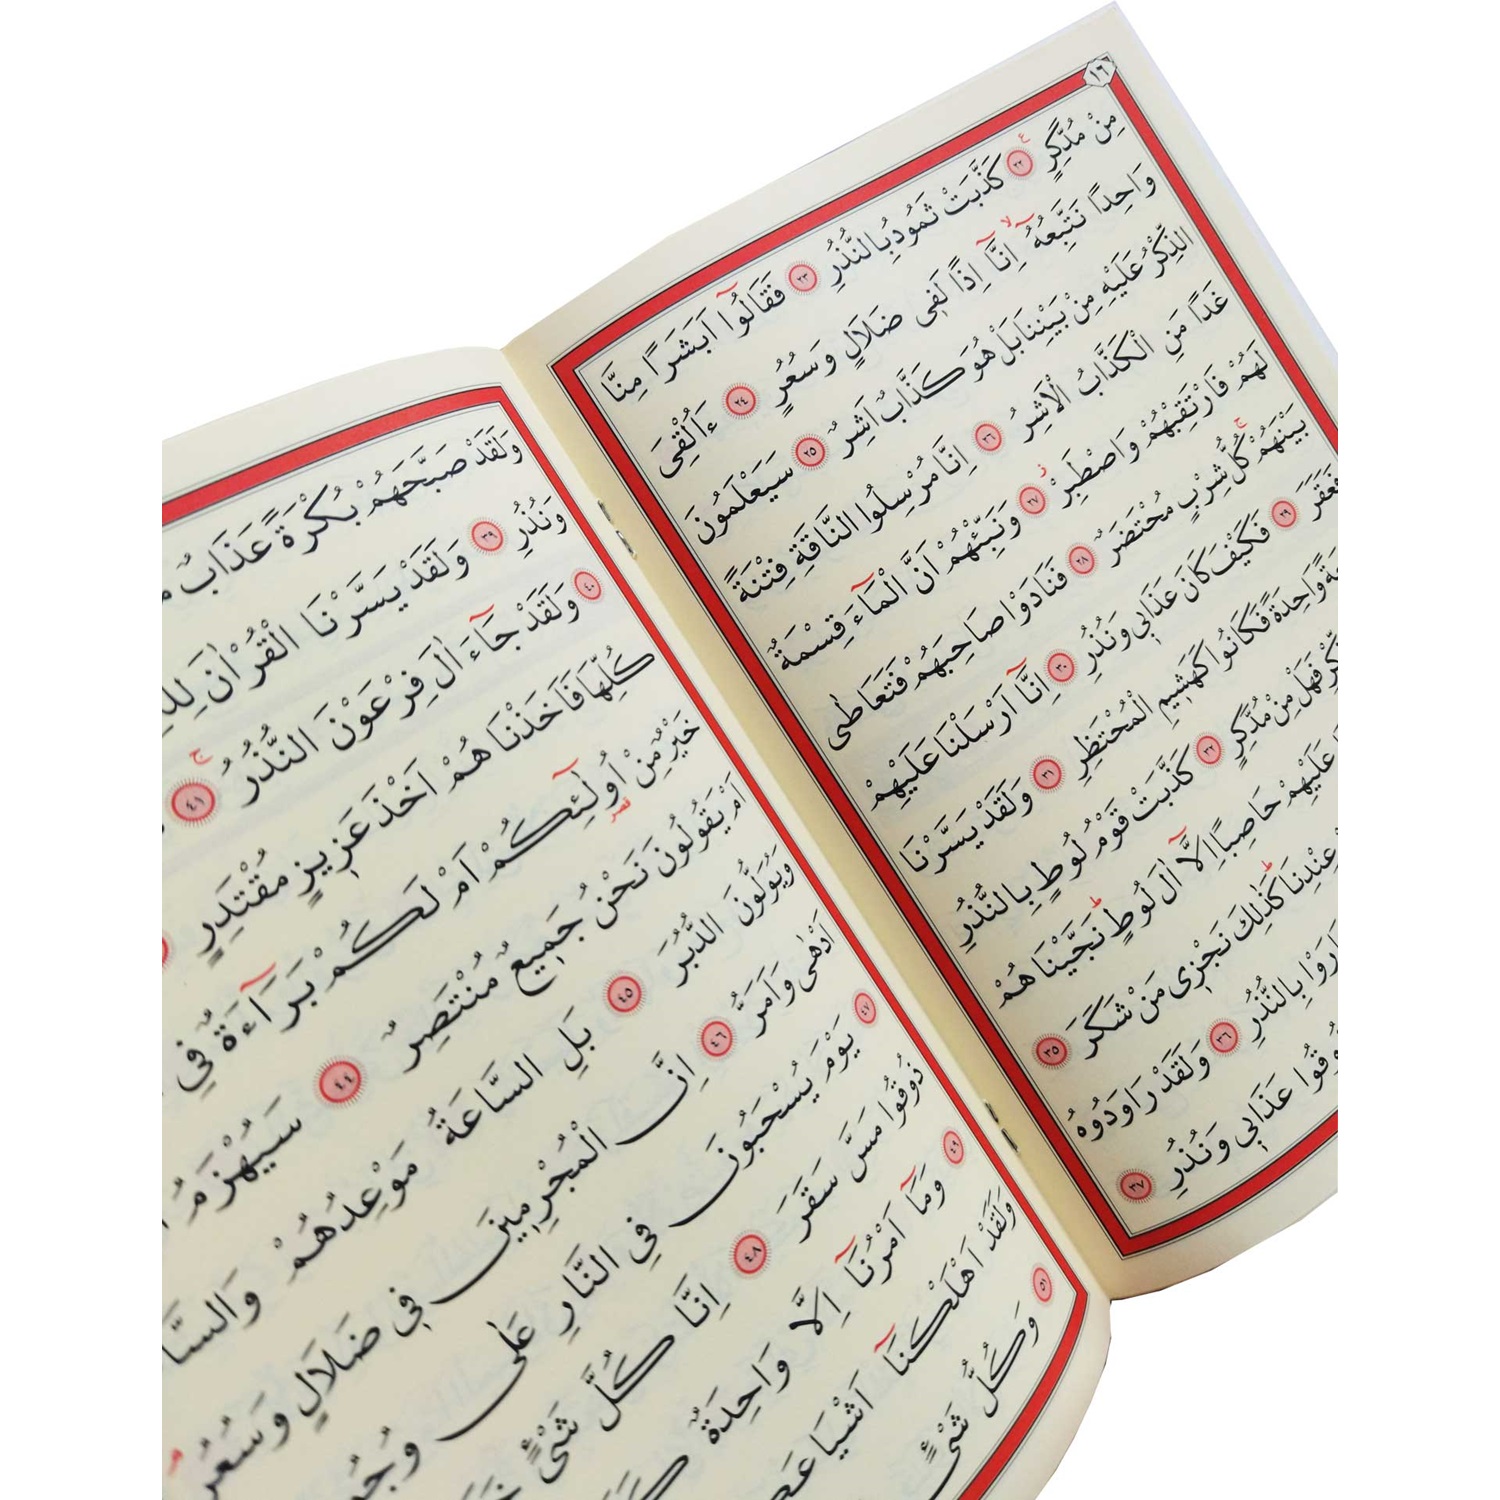 ١٦
مِنْ مُدَّكِرٍ ٢٢ ع كَذَّبَتْ ثَمُودُ بِالنُّذُرِ ٢٣ فَقَالُٓوا اَبَشَرًا مِنَّا
وَاحِدًا نَتَّبِعُهُٓ لا اِنَّٓا اِذًا لَفٖى ضَلَالٍ وَسُعُرٍ ٢٤ ءَاُلْقِىَ
الذِّكْرُ عَلَيْهِ مِنْ بَيْنِنَا بَلْ هُوَ كَذَّابٌ اَشِرٌ ٢٥ سَيَعْلَمُونَ
غَدًا مَنِ الْكَذَّابُ الْاَشِرُ ٢٦ اِنَّا مُرْسِلُوا النَّاقَةِ فِتْنَةً
لَهُمْ فَارْتَقِبْهُمْ وَاصْطَبِرْ ز ٢٧ وَنَبِّئْهُمْ اَنَّ الْمَٓاءَ قِسْمَةٌ
بَيْنَهُمْ ج كُلُّ شِرْبٍ مُحْتَضَرٌ ٢٨ فَنَادَوْا صَاحِبَهُمْ فَتَعَاطٰى
فَعَقَرَ ٢٩ فَكَيْفَ كَانَ عَذَابٖى وَنُذُرِ ٣٠ اِنَّٓا اَرْسَلْنَا عَلَيْهِمْ
وَاحِدَةً فَكَانُوا كَهَشٖيمِ الْمُحْتَظِرِ ٣١ وَلَقَدْ يَسَّرْنَا
فَهَلْ مِنْ مُدَّكِرٍ ٣٢ كَذَّبَتْ قَوْمُ لُوطٍ بِالنُّذُرِ
عَلَيْهِمْ حَاصِبًا اِلَّٓا اٰلَ لُوطٍ ط نَجَّيْنَاهُمْ
عِنْدِنَا ط كَذٰلِكَ نَجْزٖى مَنْ شَكَرَ ٣٥
بِالنُّذُرِ ٣٦ وَلَقَدْ رَاوَدُوهُ
عَذَابٖى وَنُذُرِ ٣٧
وَلَقَدْ صَبَّحَهُمْ بُكْرَةً عَذَابٌ
وَنُذُرِ ٣٩ وَلَقَدْ يَسَّرْنَا الْقُرْاٰنَ
٤٠ وَلَقَدْ جَٓاءَ اٰلَ فِرْعَوْنَ النُّذُرُ ج ٤١
كُلِّهَا فَاَخَذْنَاهُمْ اَخْذَ عَزٖيزٍ مُقْتَدِرٍ
خَيْرٌ مِنْ اُولٰٓئِكُمْ اَمْ لَكُمْ بَرَٓاءَةٌ فِى
اَمْ يَقُولُونَ نَحْنُ جَمٖيعٌ مُنْتَصِرٌ ٤٤ سَيُهْزَمُ
وَيُوَلُّونَ الدُّبُرَ ٤٥ بَلِ السَّاعَةُ مَوْعِدُهُمْ
اَدْهٰى وَاَمَرُّ ٤٦ اِنَّ الْمُجْرِمٖينَ فٖى ضَلَالٍ وَسُعُرٍ
٤٧ يَوْمَ يُسْحَبُونَ فِى النَّارِ عَلٰى
ذُوقُوا مَسَّ سَقَرَ ٤٨ اِنَّا كُلَّ شَىْءٍ
٤٩ وَمَٓا اَمْرُنَٓا اِلَّا وَاحِدَةٌ
وَلَقَدْ اَهْلَكْنَٓا
٥١ وَكُلُّ شَىْءٍ